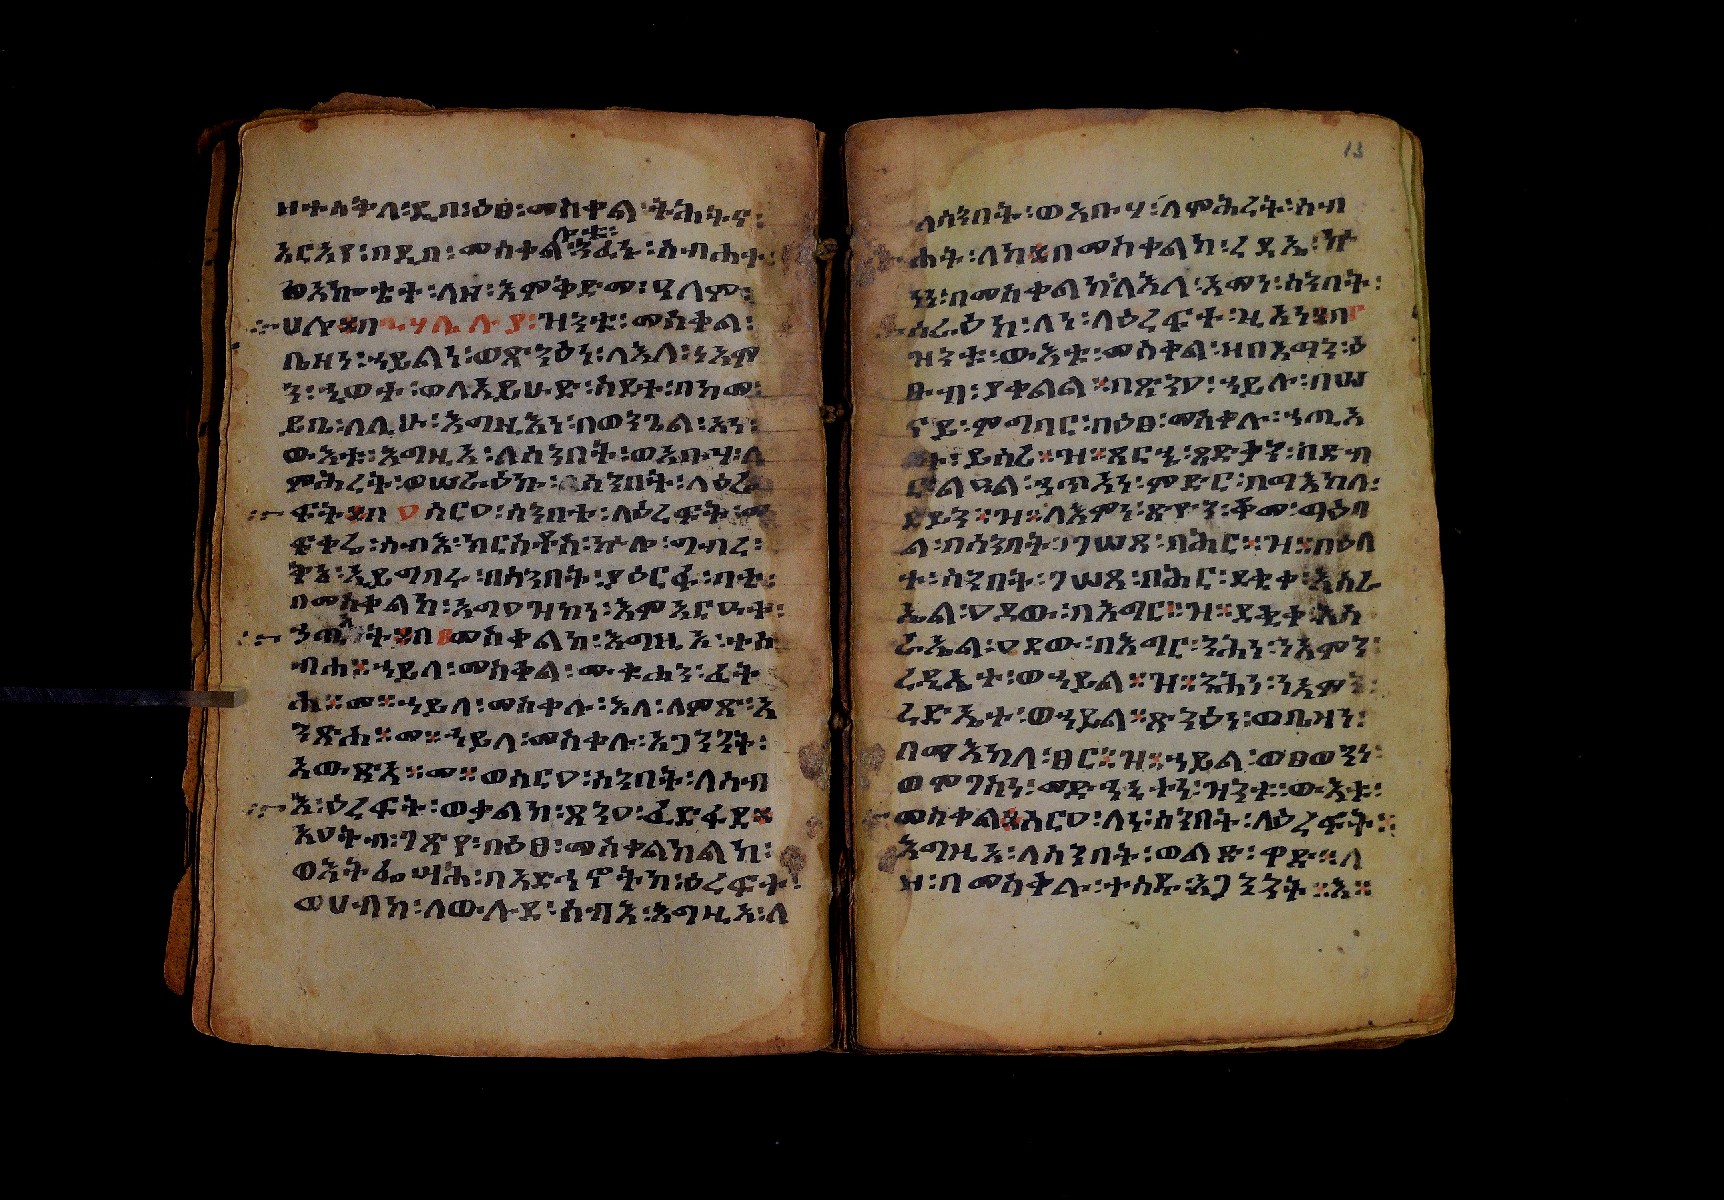 ዘተሰቅለ፡ዲበ፡ዕፀ፡መስቀል፡ትሕትና፡
ሎቱ፡
አርአየ፡በዲበ፡መስቀል፡ንፌኑ፡ስብሐተ፡
ወአኰቴተ፡ለዘ፡እምቅድመ፡ዓለም፡
ሀሎ፨በ ሃሌ ሉያ፡ዝንቱ፡መስቀል፡
ቤዛነ፡ኀይልነ፡ወጽንዕነ፡ለእለ፡ነአም
ን፡ኂወተ፡ወለአይሁድ፡ከደተ፡በከመ፡
ይቤ፡ለሊሁ፡እግዚእነ፡በወንጌል፡አነ፡
ውእቱ፡እግዚኣ፡ለሰንበት፡ወአቡሃ፡ለ
ምሕረት፡ወሠራዕኩ፡ሰንበተ፡ለዕረ
ፍት፨በ ሰርዐ፡ሰንበተ፡ለዕረፍት፡መ
ፍቀሬ፡ሰብእ፡ክርስቶስ፡ኵሎ፡ግብረ፡
ትእ፡አይግበሩ፡በሰንበት፡ያዕርፉ፡ባቲ፡
በመስቀልከ፡አግዐዝከነ፡እምአርዑተ፡
ኀጢአት፨በ መስቀልከ፡እግዚኦ፡ተሰ
ብሐ፨ኀይለ፡መስቀል፡ሙቁሐን፡ፈት
ሐ፨መ፨ኀይለ፡መስቀሉ፡እለ፡ለምጽ፡አ
ንጽሐ፨መ፨ኀይለ፡መስቀሉ፡አጋንንት፡
አውጽአ፨መ፨ወሰርዐ፡ሰንበት፡ለሰብ
እ፡ዕረፍት፡ወቃልከ፡ጽንዐ፡ፈድፋደ፨
አዕትብ፡ገጽየ፡በዕፀ፡መስቀልከልከ፡
ወእትፌሣሕ፡በአድኅኖትከ፡ዕረፍተ፡
ወሀብከ፡ለውሉደ፡ሰብእ፡እግዚኦ፡ለ
13
ለሰንበት፡ወአቡሃ፡ለምሕረት፡ስብ
ሐት፡ለከ፨በመስቀልከ፡ረዳኤ፡ኩ
ነነ፡በመስቀልከ፡ለእለ፡አመነ፡ሰንበት፡
ሰራዕከ፡ለነ፡ለዕረፍተ፡ዚአነ፨በ
ዝንቱ፡ውእቱ፡መስቀል፡ዘበአማን፡ዕ
ፁብ፡ያቀልል፨በጽንዐ፡ኀይሉ፡በሠ
ናይ፡ምግባር፡በዕፀ፡መስቀሉ፡ኀጢአ
ተ፡ይሰሪ፨ዝ፨ጸርሂ፡ጸድቃን፡በድብ
ርልዑል፡ኃጥኣን፡ምድር፡በማእከለ፡
ደይን፨ዝ፨ለአምነ፡ጽዮን፡ቆመ፡ማዕበ
ል፡በሰንበት፡ገሠጸ፡በሕር፨ዝ፨በዕለ
ተ፡ሰንበት፡ገሠጸ፡በሕር፡ደቂቀ፡እስራ
ኤል፡ዐደው፡በእግር፨ዝ፨ደቂቀ፡እስ
ራኤል፡ዐደው፡በእግር፡ንሕነ፡ንአምን፡
ረዲኤተ፡ወኀይል፨ዝ፨ንሕነ፡ንአምን፡
ረድኤተ፡ወኀይል፨ጽንዕነ፡ወቤዛነ፡
በማእከለ፡ፀር፨ዝ፨ኀይል፡ወፀወንነ፡
ወሞገስነ፡መድኀኒተነ፡ዝንቱ፡ውእቱ፡
መስቀል፨ሰርዐ፡ለነ፡ሰንበት፡ለዕረፍት፡
እግዚኣ፡ለሰንበት፡ወልድ፡ዋድ፨ለ
ዘ፡በመስቀሉ፡ተሰደ፡አጋንንት፨እ፨